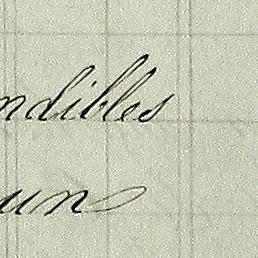 ndibles
un